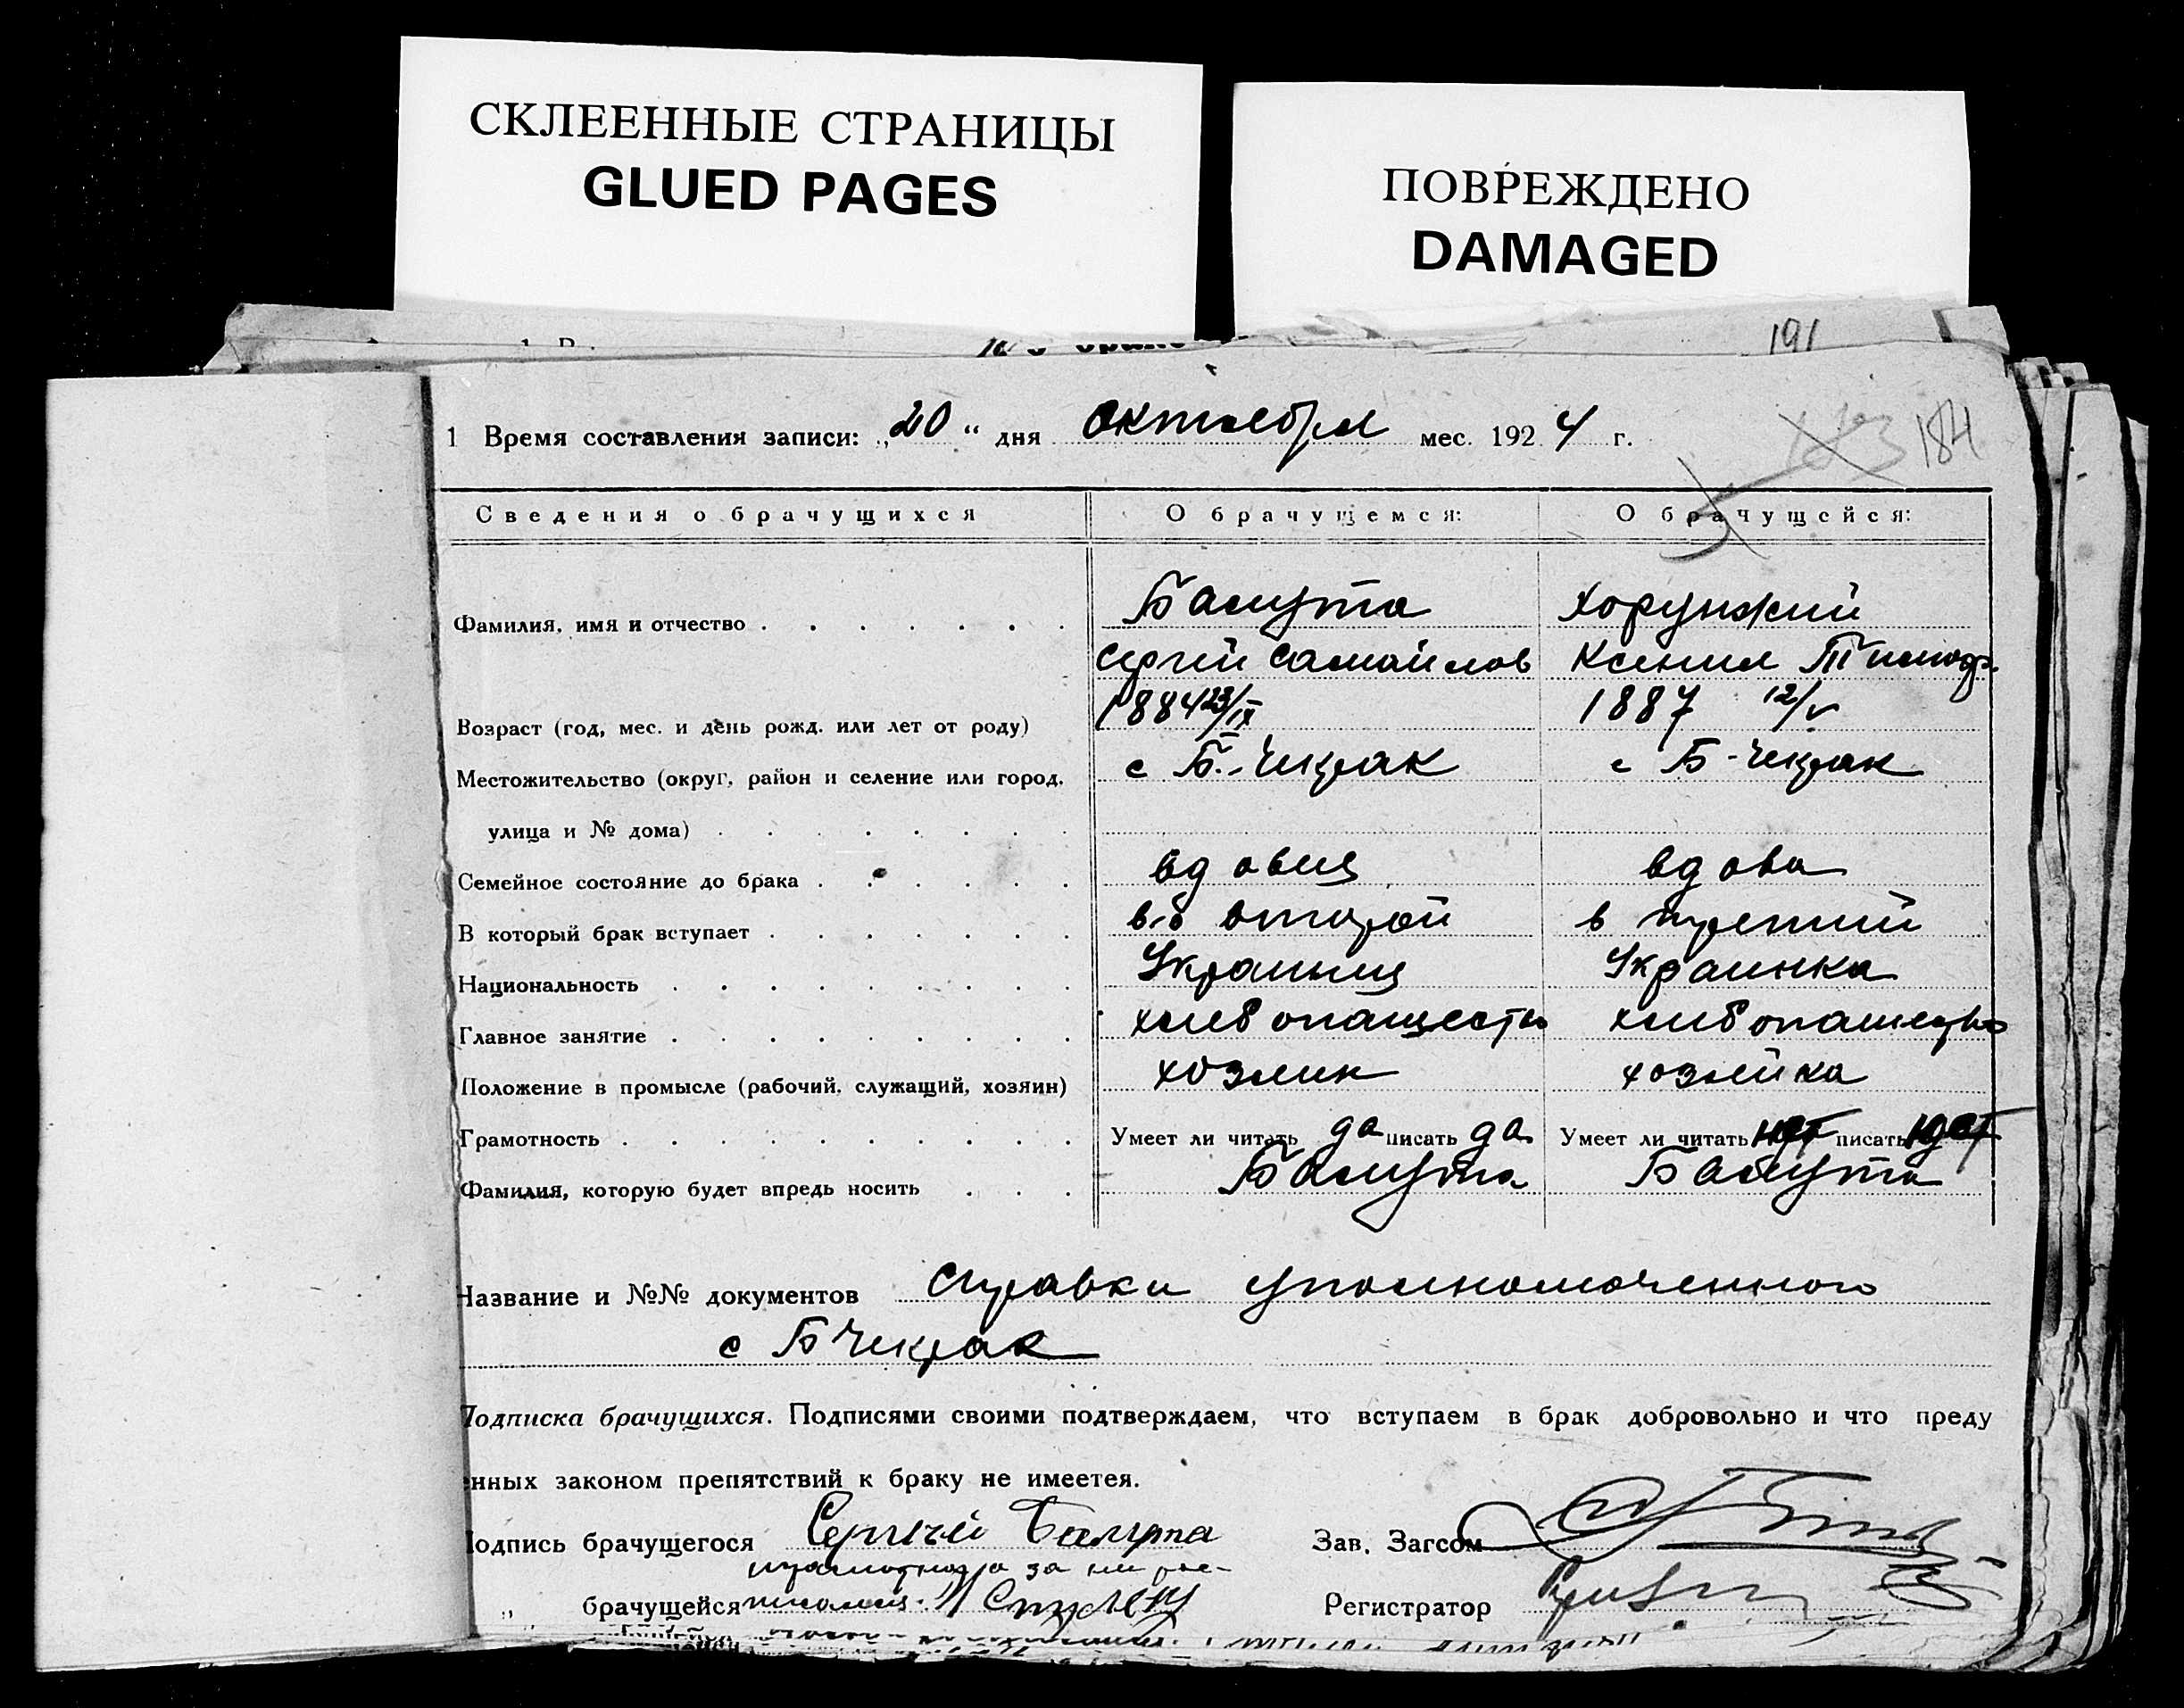 СКЛЕЕННЫЕ СТРАНИЦЫ
GLUED PAGES
ПОВРЕЖДЕНО
DAMAGED
191
1 Время составления записи: „20“ дня октября мес. 1924 г.
183 184
Сведения о брачущихся О брачущемся: О брачущейся:
Фамилия, имя и отчество Хорунжий
Сергей Самойлов Ксения Тимоф.
Возраст (год, мес. и день рожд. или лет от роду) 1884 23/IX 1887 12/V
Местожительство (округ, район и селение или город, с Б.-Чекрак с Б-Чекрак
улица и № дома)
Семейное состояние до брака вдовец вдова
В который брак вступает во второй в третий
Национальность Украинец Украинка
Главное занятие хлебопашество хлебопашество
Положение в промысле (рабочий, служащий, хозяин) хозяин хозяйка
Грамотность Умеет ли читать да писать да Умеет ли читать нет писать нет
Фамилия, которую будет впредь носить
Название и №№ документов Справки уполномоченного
с Б Чекрак
Подписка брачущихся. Подписями своими подтверждаем, что вступаем в брак добровольно и что преду
енных законом препятствий к браку не имеетея.
одпись брачущегося Сергей Зав. Загсом
„ брачущейся Регистратор